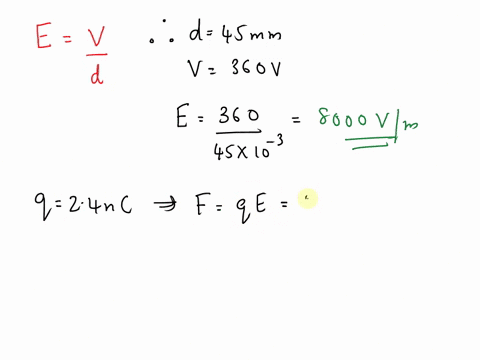 E = V/d ∴ d = 45mm
V = 360V
E = 360/45×10⁻³ = 8000 V/m
q = 2.4nC → F = qE =